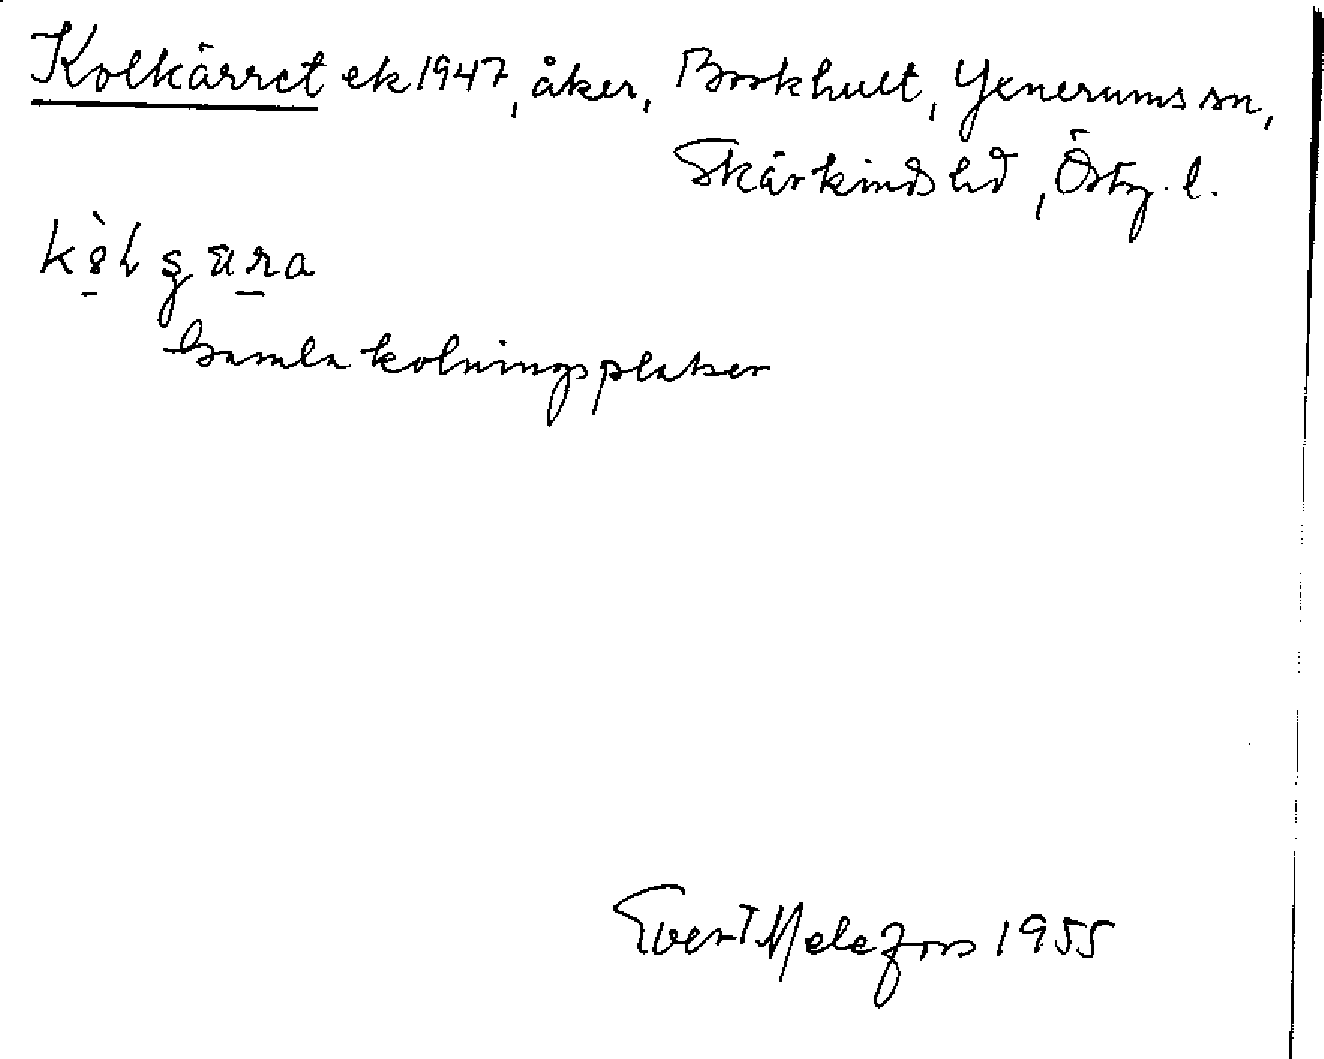 Kolkärret ek 1947, åker, Borkhult, Yxnerums sn,
Skärkinds hd, Östg. l.
Gamla kolningsplatser
Evert Melefors 1955